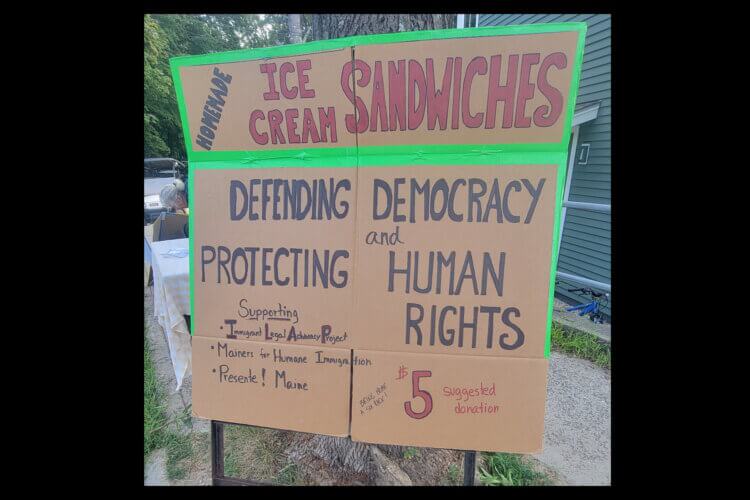 HOMEMADE
ICE CREAM SANDWICHES
DEFENDING DEMOCRACY
and
PROTECTING HUMAN
RIGHTS
Supporting
• Immigrant Legal Advocacy Project
• Mainers for Humane Immigration
• Presente! Maine
$5 suggested
donation